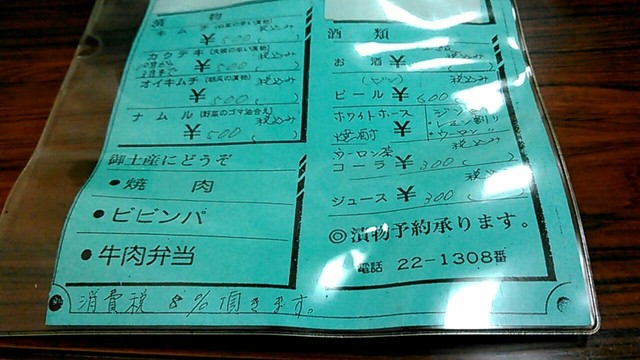 漬物
キムチ(白菜の辛い漬物) 税込み
¥500( )
カクテキ(大根の辛い漬物) 税込み
¥500( )
オイキムチ(胡瓜の漬物) 税込み
¥500( )
ナムル(野菜のゴマ油合え) 税込み
¥500( )
御土産にどうぞ
●焼 肉
●ビビンバ
●牛肉弁当
酒類
お酒 ¥
税込み
ビール ¥600( )
ホワイトホース
焼酎
・レモン割り
・ウーロン〃
ウーロン茶 税込み
コーラ ¥300( )
税込み
ジュース ¥300( )
◎漬物予約承ります。
電話 22-1308番
消費税 8%頂きます。